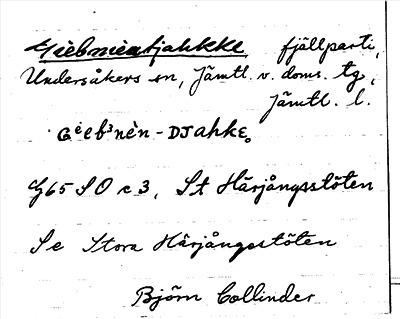 Giebmientjahkke fjällparti,
Undersåkers sn, Jämtl. v. doms. tg,
Jämtl. l.
Gèeb³nèn-DJahkE.
G65 SO c3, St Härjångsstöten
Se Stora Härjångsstöten
Björn Collinder